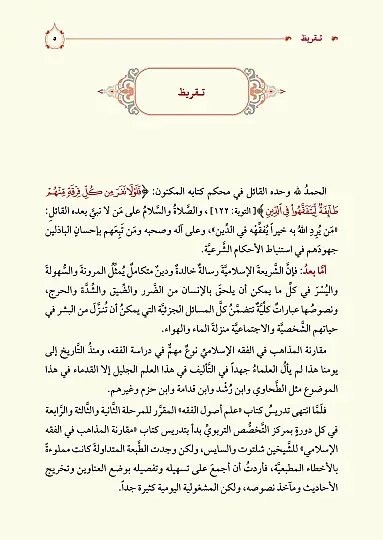 تقريظ
٥
تقريظ
الحمدُ لله وحده القائل في محكم كتابه المكنون: ﴿فَلَوْلَا نَفَرَ مِن كُلِّ فِرْقَةٍ مِّنْهُمْ
طَائِفَةٌ لِّيَتَفَقَّهُوا فِي الدِّينِ﴾ [التوبة: ١٢٢]، والصَّلاة والسَّلامُ على مَن لا نبيَّ بعده القائل:
«مَن يُرِدِ اللهُ به خيراً يُفقِّهْه في الدِّين»، وعلى آله وصحبه ومَن تَبِعَهم بإحسانٍ الباذلين
جهودَهم في استنباط الأحكام الشَّرعيَّة.
أمَّا بعدُ: فإنَّ الشَّريعة الإسلاميَّة رسالةٌ خالدةٌ ودينٌ متكاملٌ يُمثِّلُ المرونةَ والسُّهولةَ
واليُسْرَ في كلِّ ما يمكن أن يلحقَ بالإنسان من الضَّرر والضِّيق والشِّدَّة والحرج،
ونصوصُها عباراتٌ كلِّيَّةٌ تتضمَّنُ كلَّ المسائل الجزئيَّة التي يمكنُ أن تُنزَّلَ من البشر في
حياتهم الشَّخصيَّة والاجتماعيَّة منزلةَ الماء والهواء.
مقارنة المذاهب في الفقه الإسلاميِّ نوعٌ مهمٌّ في دراسة الفقه، ومنذُ التَّاريخ إلى
يومنا هذا لم يألُ العلماءُ جهداً في التَّأليف في هذا العلم الجليل إلا القدماء في هذا
الموضوع مثل الطَّحاوي وابن رُشْد وابن قدامة وابن حزم وغيرهم.
فلَمَّا انتهى تدريسُ كتاب «علم أصول الفقه» المقرَّر للمرحلة الثَّانية والثَّالثة والرَّابعة
في كل دورةٍ بمركز التَّخصُّص التربويِّ بدأ بتدريس كتاب «مقارنة المذاهب في الفقه
الإسلامي» للشَّيخين شلتوت والسايس، ولكن وجدت الطَّبعة المتداولةَ كانت مملوءةً
بالأخطاء المطبعيَّة، فأردتُ أن أجمعَ على تسهيله وتفصيله بوضع العناوين وتخريج
الأحاديث ومآخذ نصوصه، ولكن المشغولية اليومية كثيرة جداً.